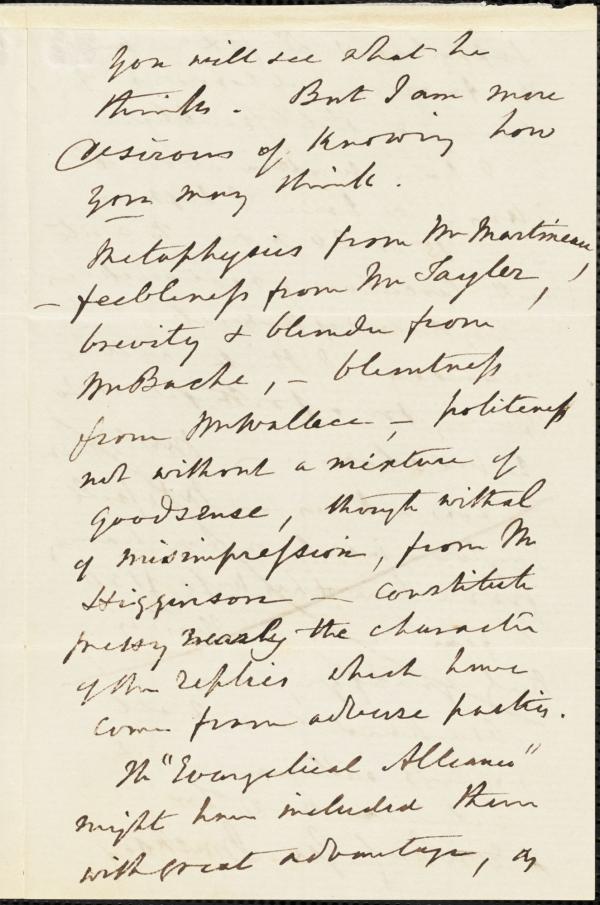 you will see what he
thinks. But I am more
desirous of knowing how
you may think.
Metaphysics from Mr Martineau,
- feebleness from Mr Tayler,
brevity & blunder from
Mr Bache, - bluntness
from Mr Wallace - politeness
not without a mixture of
goodsense, though withal
of misimpression, from Mr
Higginson - constitute
pretty nearly the character
of the replies which have
come from adverse parties.
The "Evangelical Alliance"
might have included them
with great advantage, as